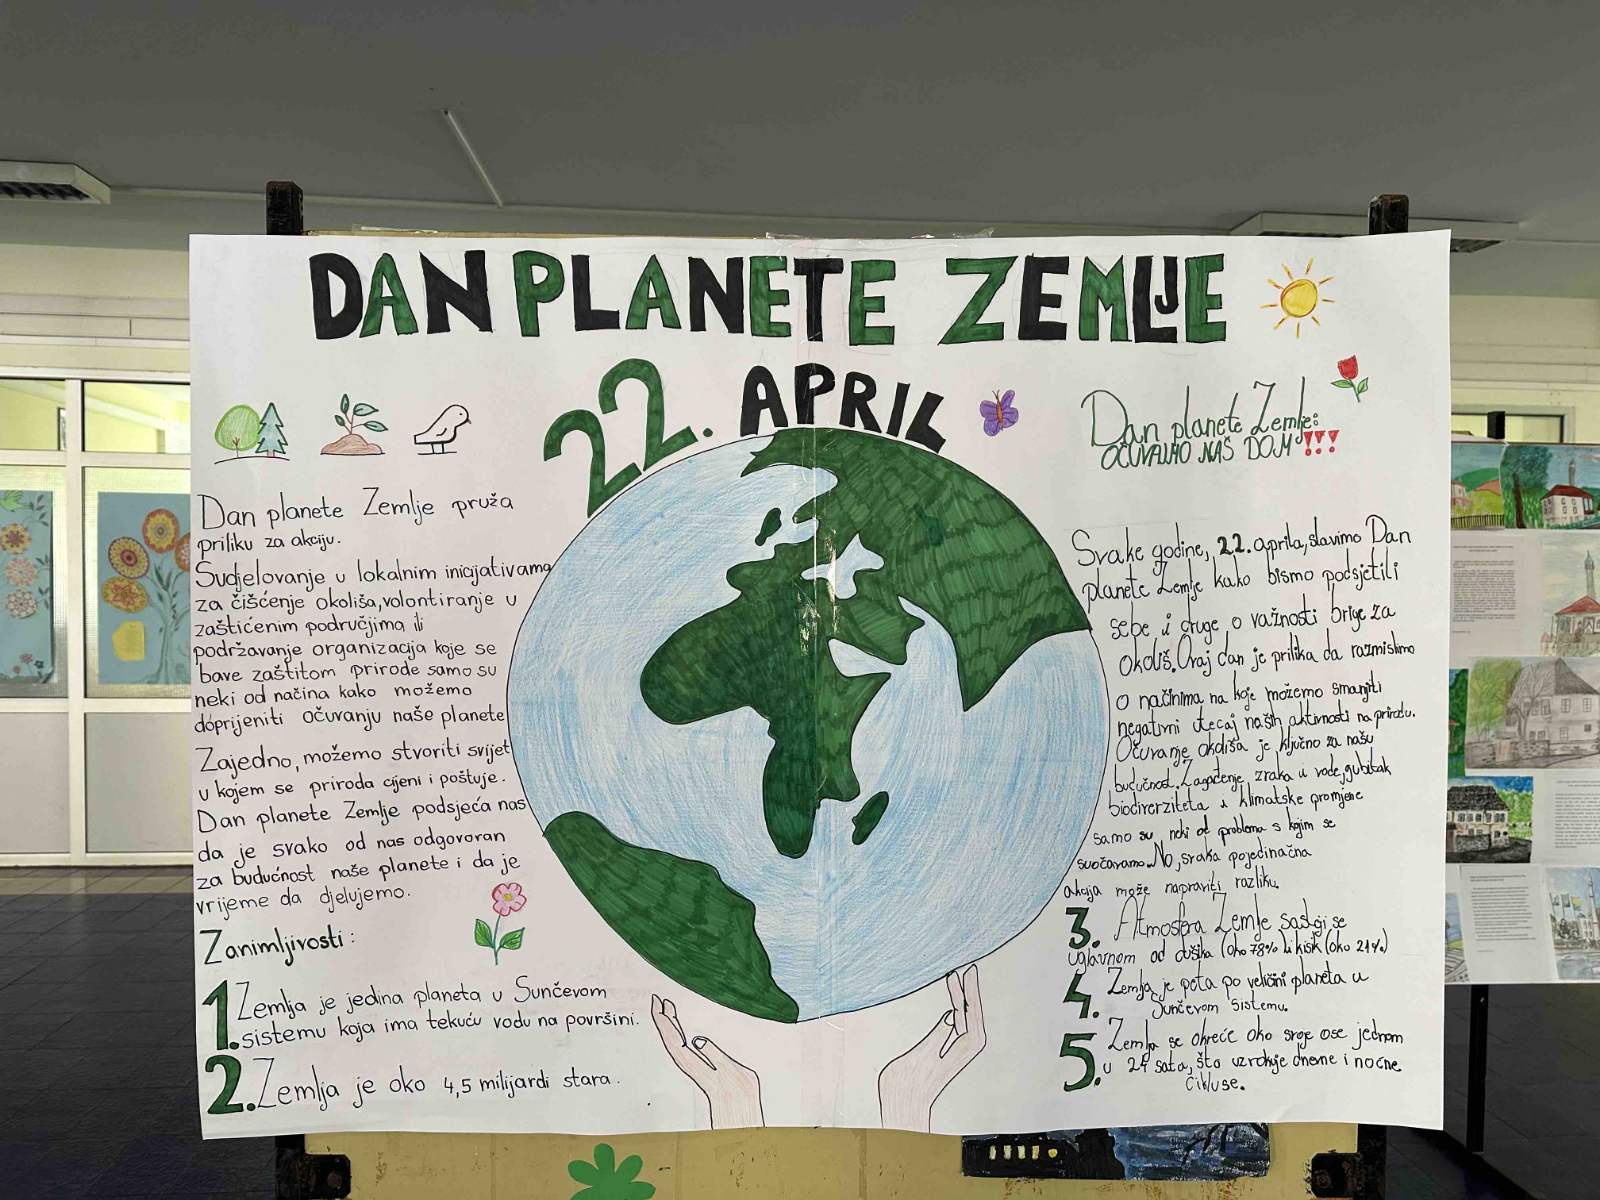 DAN PLANETE ZEMLJE
22. APRIL
Dan planete Zemlje pruža
priliku za akciju.
Sudjelovanje u lokalnim inicijativama
za čišćenje okoliša, volontiranje u
zaštićenim područjima ili
podržavanje organizacija koje se
bave zaštitom prirode samo su
neki od načina kako možemo
doprijeniti očuvanju naše planete
Zajedno, možemo stvoriti svijet
u kojem se priroda cijeni i poštuje.
Dan planete Zemlje podsjeća nas
da je svako od nas odgovoran
za budućnost naše planete i da je
vrijeme da djelujemo.
Zanimljivosti:
1. Zemlja je jedina planeta u Sunčevom
sistemu koja ima tekuću vodu na površini.
2. Zemlja je oko 4,5 milijardi stara.
Dan planete Zemlje:
OČUVAJMO NAŠ DOM!!!
Svake godine, 22. aprila, slavimo Dan
planete Zemlje kako bismo podsjetili
sebe i druge o važnosti brige za
okoliš. Ovaj dan je prilika da razmislimo
o načinima na koje možemo smanjiti
negativni utecaj naših aktivnosti na prirodu.
Očuvanje okoliša je ključno za našu
budućnost. Zagađenje zraka i vode, gubitak
biodiverziteta i klimatske promjene
samo su neki od problema s kojim se
suočavamo. No, svaka pojedinačna
akcija može napraviti razliku.
3. Atmosfera Zemlje sastoji se
uglavnom od dušika (oko 78%) i kisik (oko 21%)
4. Zemlja je peta po veličini planeta u
Sunčevom sistemu.
5. Zemlja se okreće oko svoje ose jednom
u 24 sata, što uzrokuje dnevne i noćne
cikluse.